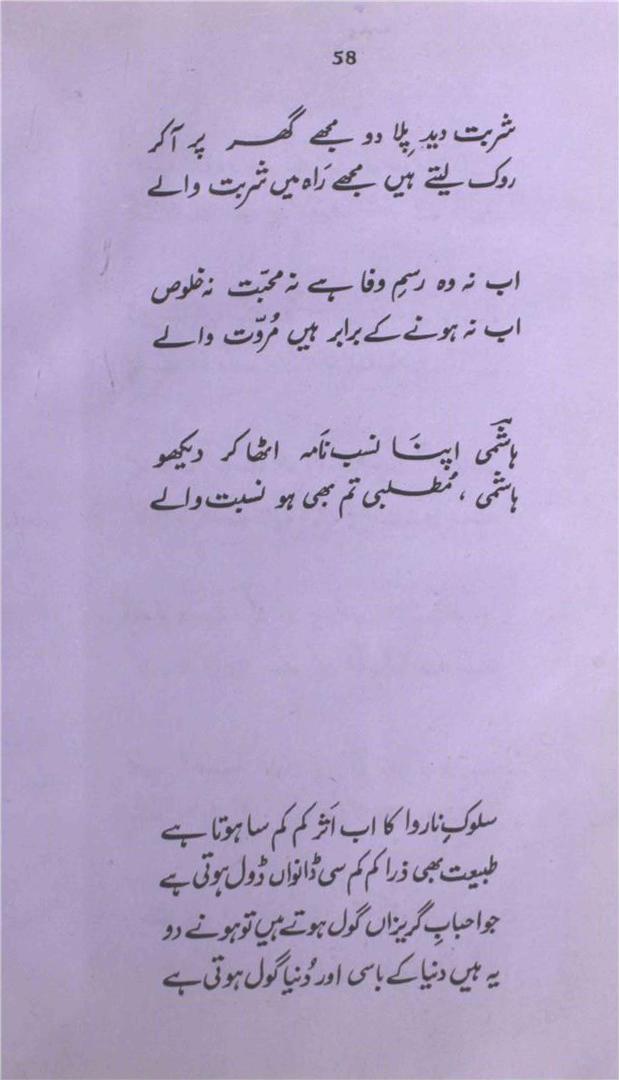 58
شربت دید پِلا دو مجھے گھر پر آ کر
روک لیتے ہیں مجھے رَاہ میں شربت والے
اب نہ وہ رسمِ وفا ہے نہ محبّت نہ خلوص
اب نہ ہونے کے برابر ہیں مُروّت والے
ہاشمی اپنَا نسب نَامہ اٹھا کر دیکھو
ہاشمی ، مُطلبی تم بھی ہو نسبت والے
سلوکِ ناروا کا اب اَثر کم کم سا ہوتا ہے
طبیعت بھی ذرا کم کم سی ڈانواں ڈول ہوتی ہے
جو احبابِ گریزاں گول ہوتے ہیں تو ہونے دو
یہ ہیں دنیا کے باسی اور دُنیا گول ہوتی ہے